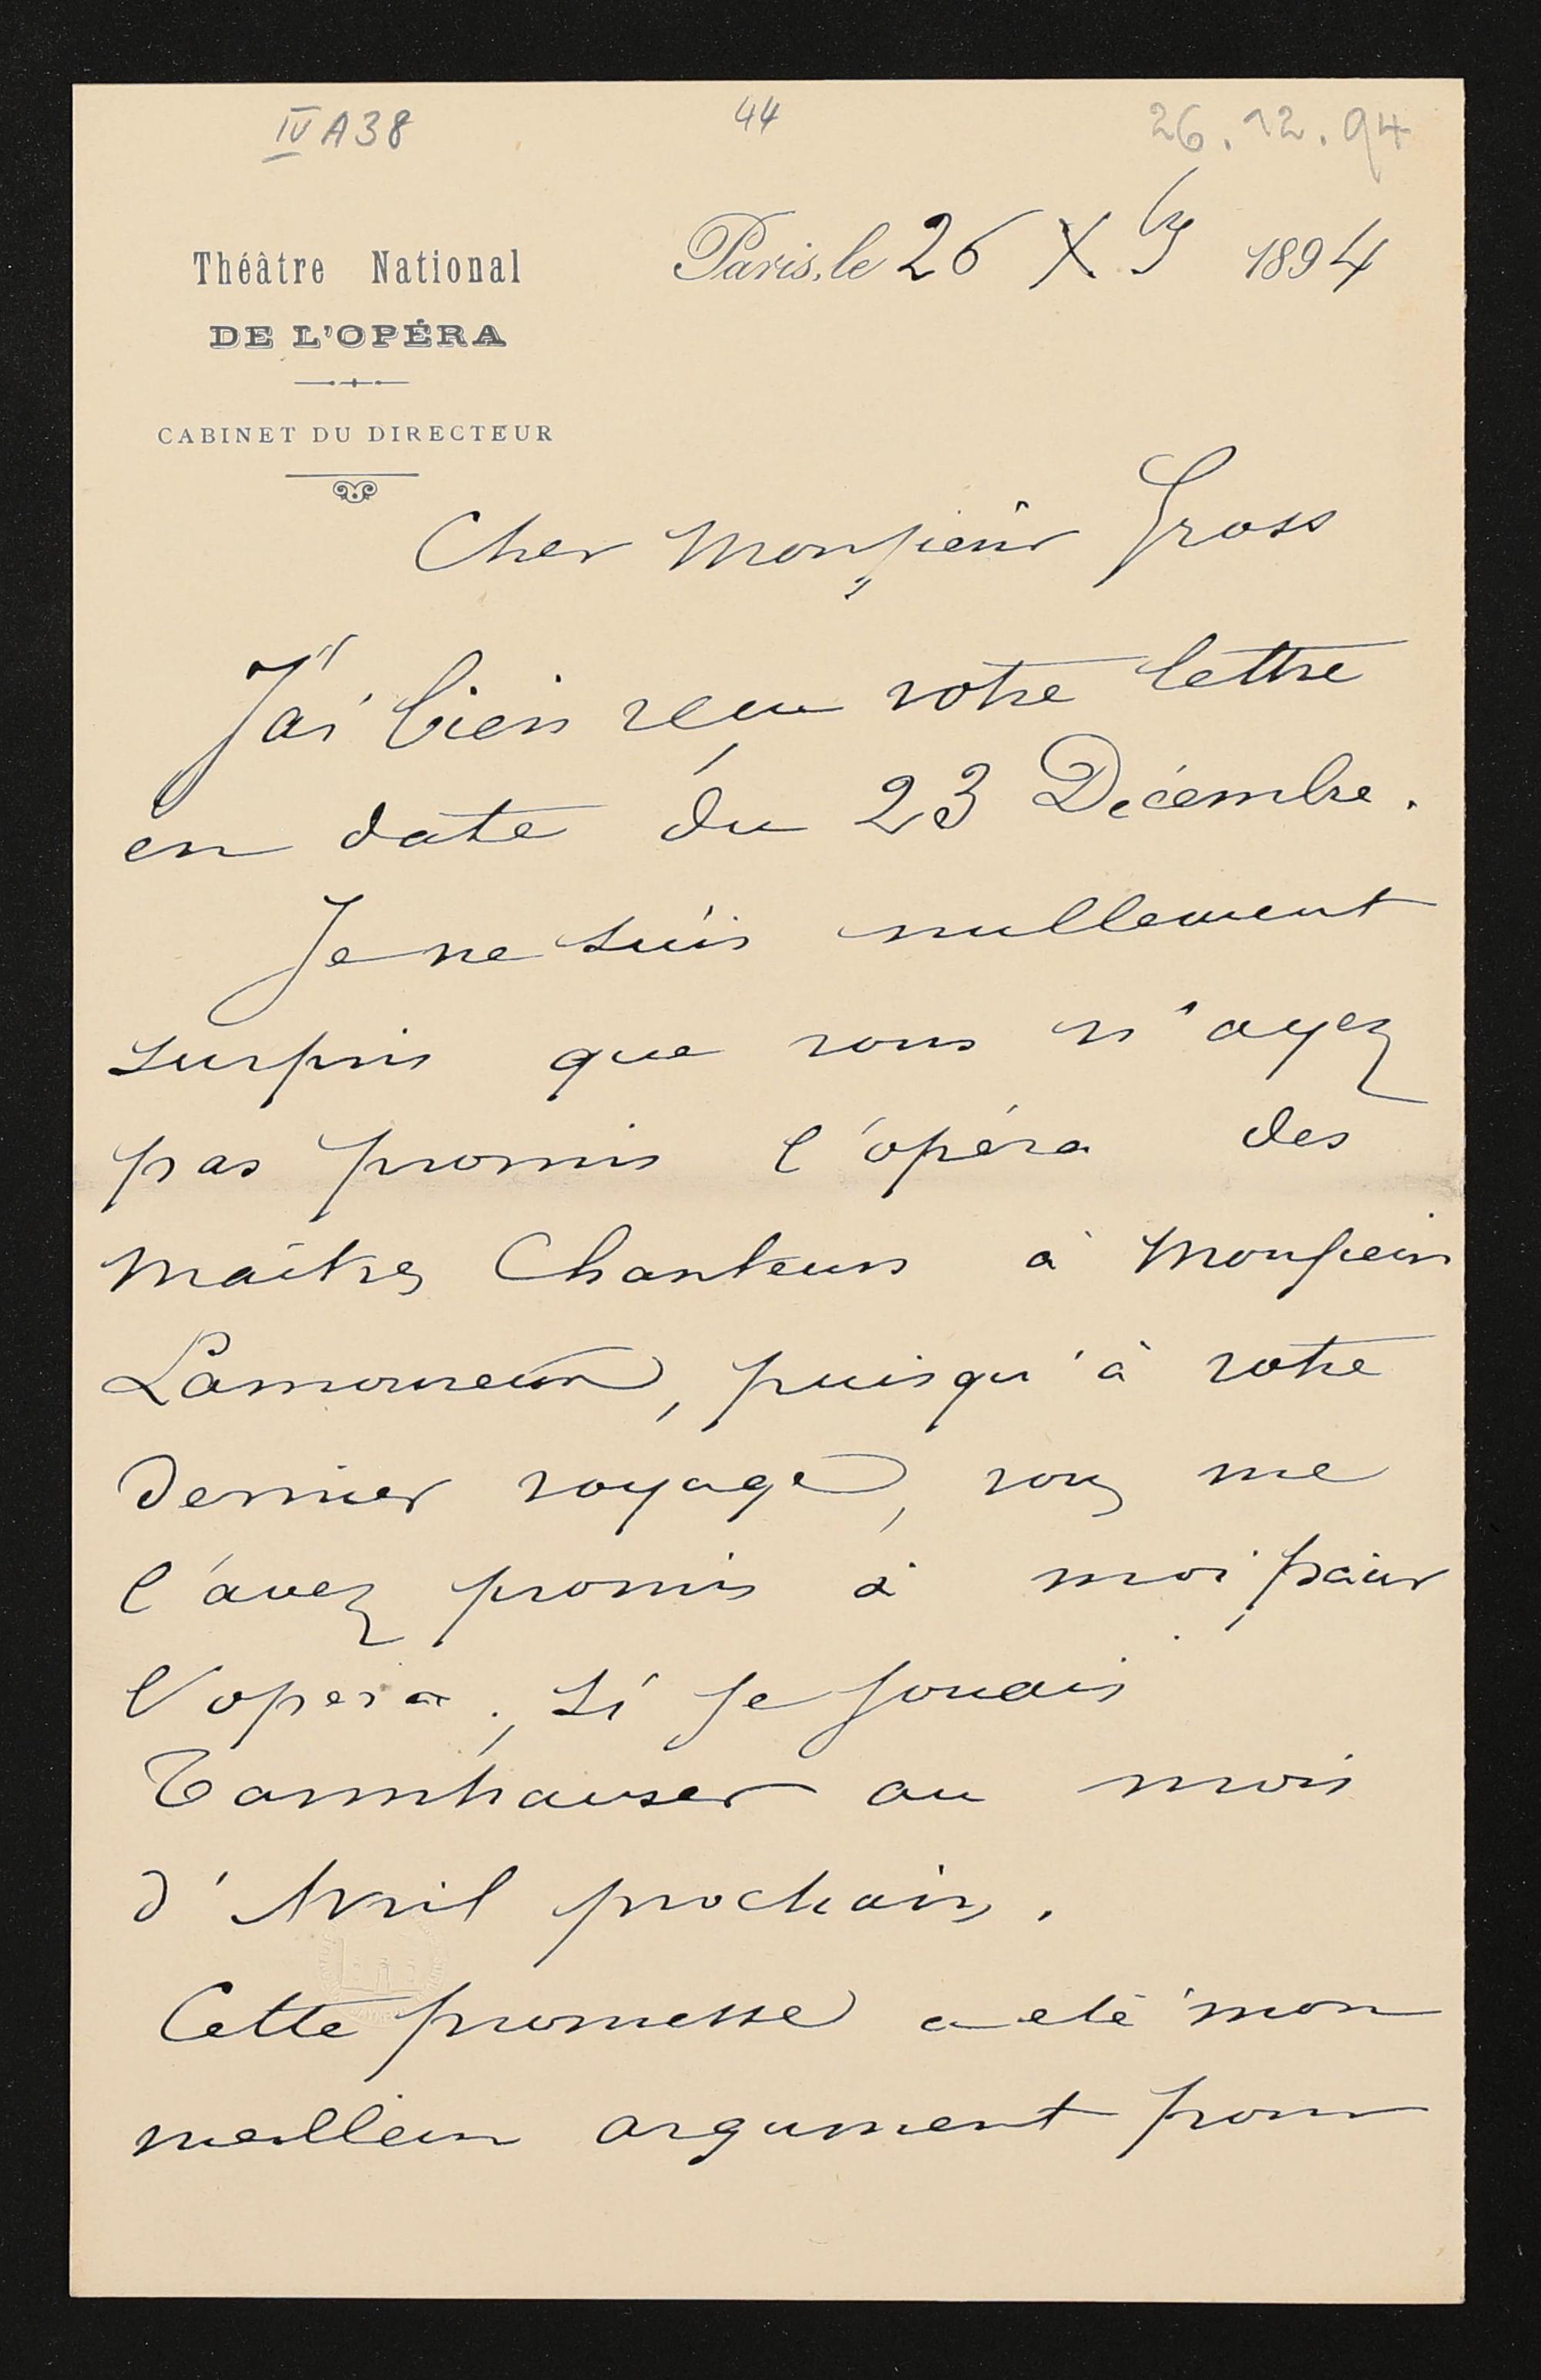 IV A38
44
26.12.94
Théâtre National
DE L'OPÉRA
CABINET DU DIRECTEUR
Paris, le 26 Xbre 1894
Cher Monsieur Gross
J'ai bien reçu votre lettre
en date du 23 Décembre.
Je ne suis nullement
surpris que vous n'ayez
pas promis l'opéra des
Maîtres Chanteurs à Monsieur
Lamoureux, puisqu'à votre
dernier voyage, vous me
l'avez promis à moi pour
l'opera, si je jouais
Tannhauser au mois
d'Avril prochain.
Cette promesse a été mon
meilleur argument pour